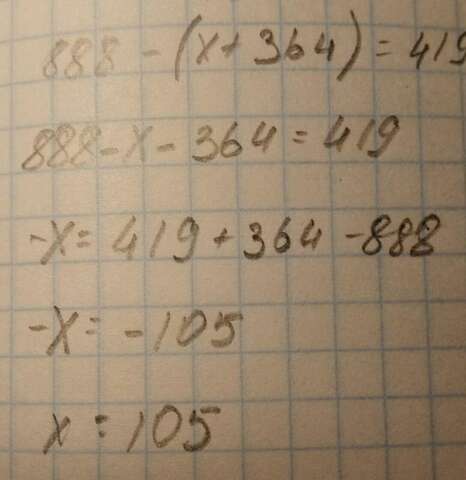 888 - (x + 364) = 419
888 - x - 364 = 419
-x = 419 + 364 - 888
-x = -105
x = 105